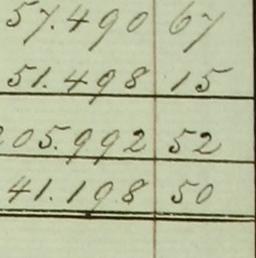 57.490 67
51.498 15
205.992 52
41.198 50